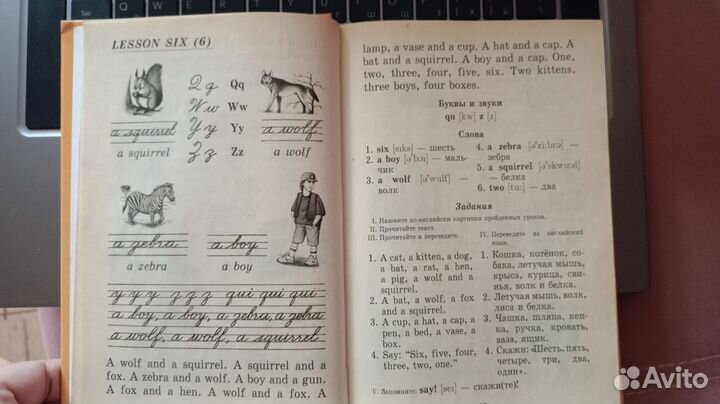 LESSON SIX (6)
Qq Qq
Ww Ww
Yy Yy
Zz Zz
a squirrel
a wolf
a squirrel
a wolf
a zebra
a boy
a zebra
a boy
y y y z z z qui qui qui
a boy, a boy, a zebra, a zebra
a wolf, a wolf, a squirrel
A wolf and a squirrel. A squirrel and a
fox. A zebra and a wolf. A boy and a gun.
A fox and a hen. A wolf and a fox. A
lamp, a vase and a cup. A hat and a cap. A
bat and a squirrel. A boy and a cap. One,
two, three, four, five, six. Two kittens,
three boys, four boxes.
Буквы и звуки
qu [kw] z [z]
Слова
1. six [sıks] — шесть
2. a boy [ə'bɔı] — маль-
чик
3. a wolf [ə'wulf] —
волк
4. a zebra [ə'zi:brə] —
зебра
5. a squirrel [ə'skwırəl]
— белка
6. two [tu:] — два
Задания
I. Назовите по-английски картинки пройденных уроков.
II. Прочитайте текст.
III. Прочитайте и переведите.
1. A cat, a kitten, a dog,
a bat, a rat, a hen,
a pig, a wolf and a
squirrel.
2. A bat, a wolf, a fox
and a squirrel.
3. A cup, a hat, a cap, a
pen, a bed, a vase, a
box.
4. Say: “Six, five, four,
three, two, one.”
IV. Переведите на английский
язык.
1. Кошка, котёнок, со-
бака, летучая мышь,
крыса, курица, сви-
нья, волк и белка.
2. Летучая мышь, волк,
лиса и белка.
3. Чашка, шляпа, кеп-
ка, ручка, кровать,
ваза, ящик.
4. Скажи: «Шесть, пять,
четыре, три, два,
один».
V. Запомните: say! [seı] — скажи(те)!
Avito